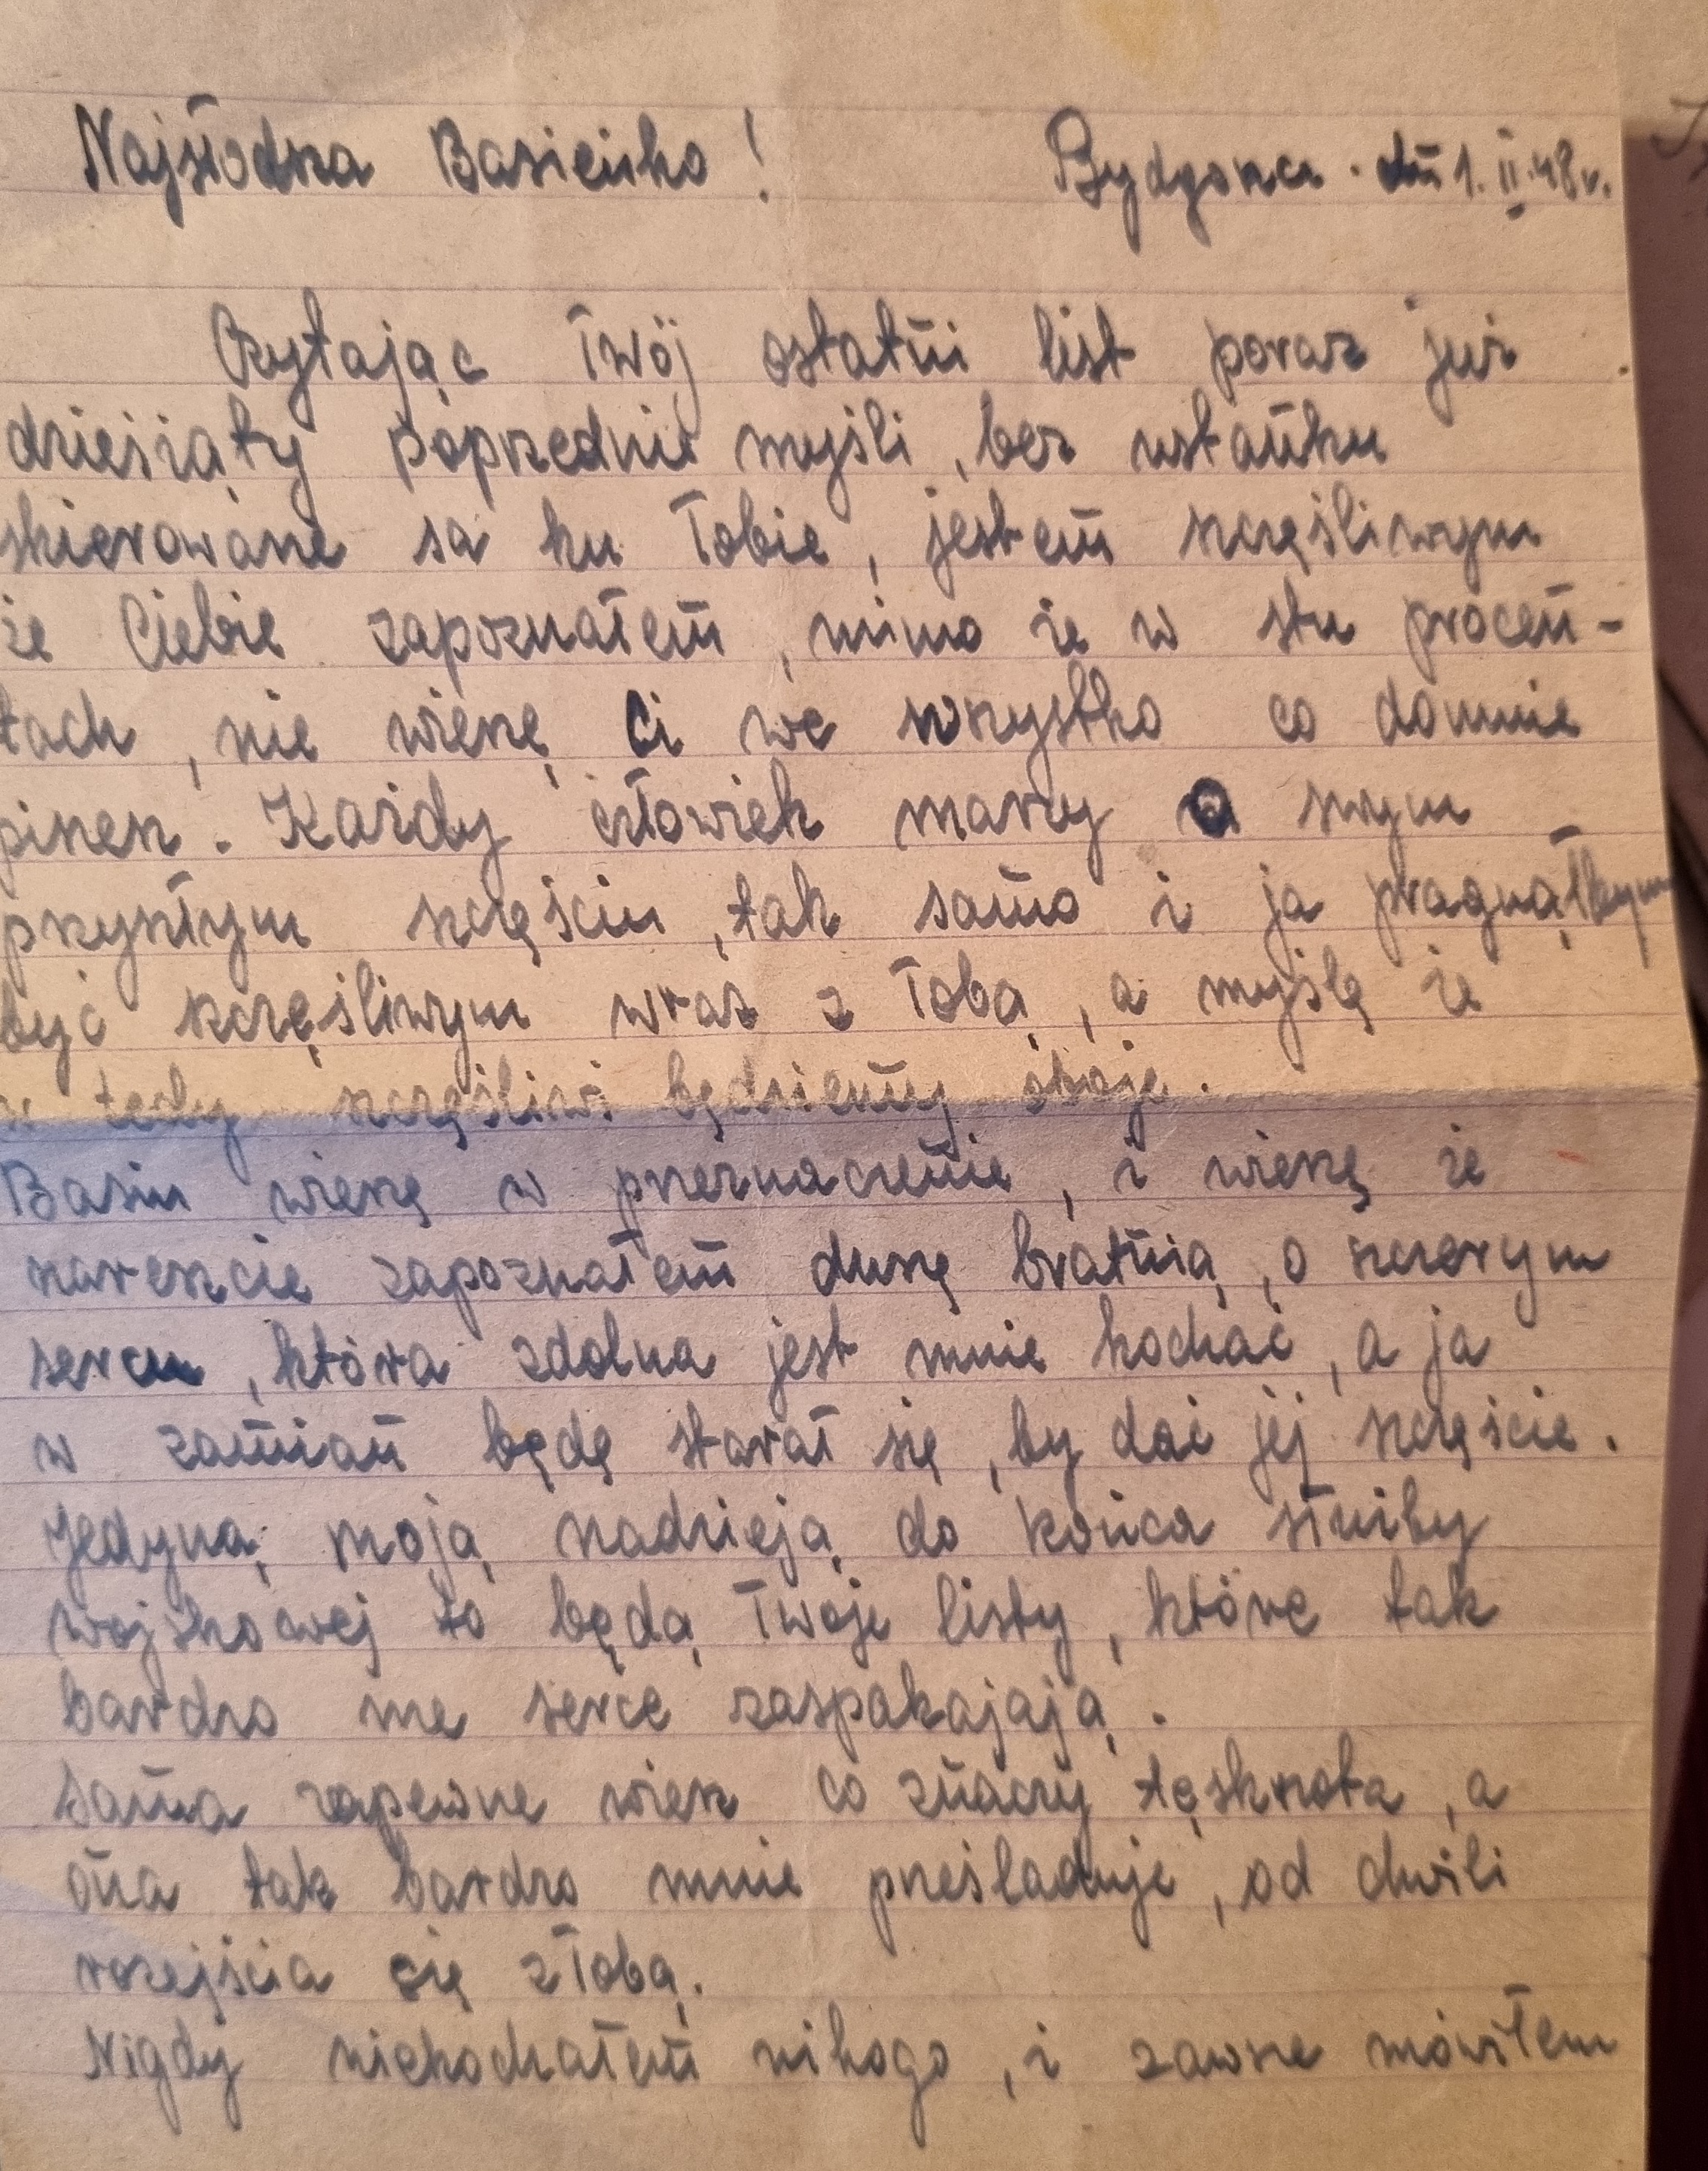 Najsłodsza Basieńko! Bydgoszcz. dń 1. II. 48 r.
Czytając Twój ostatni list poraz już
dziesiąty poprzednie myśli, bez ustanku
skierowane sa ku Tobie, jestem szczęśliwym
że Ciebie zapoznałem, mimo że w stu procen-
tach, nie wierzę Ci we wszystko co domnie
piszesz. Każdy człowiek marzy o swym
przyszłym szczęściu, tak samo i ja pragnąłbym
być szczęśliwym wraz z Tobą, a myślę że
w tedy szczęśliwi będziemy oboje.
Basiu wierzę w przeznaczenie, i wierzę że
nareszcie zapoznałem duszę bratnią, o szczerym
sercu, która zdolna jest mnie kochać, a ja
w zamian będę starał się, by dać jej szczęście.
Jedyną moją nadzieją do końca służby
wojskowej to będą Twoje listy, które tak
bardzo me serce zaspakajają.
Sama zapewne wiesz co znaczy tęsknota, a
ona tak bardzo mnie prześladuje, od chwili
rozejścia się z Tobą.
Nigdy niekochałem nikogo, i zawsze mówiłem